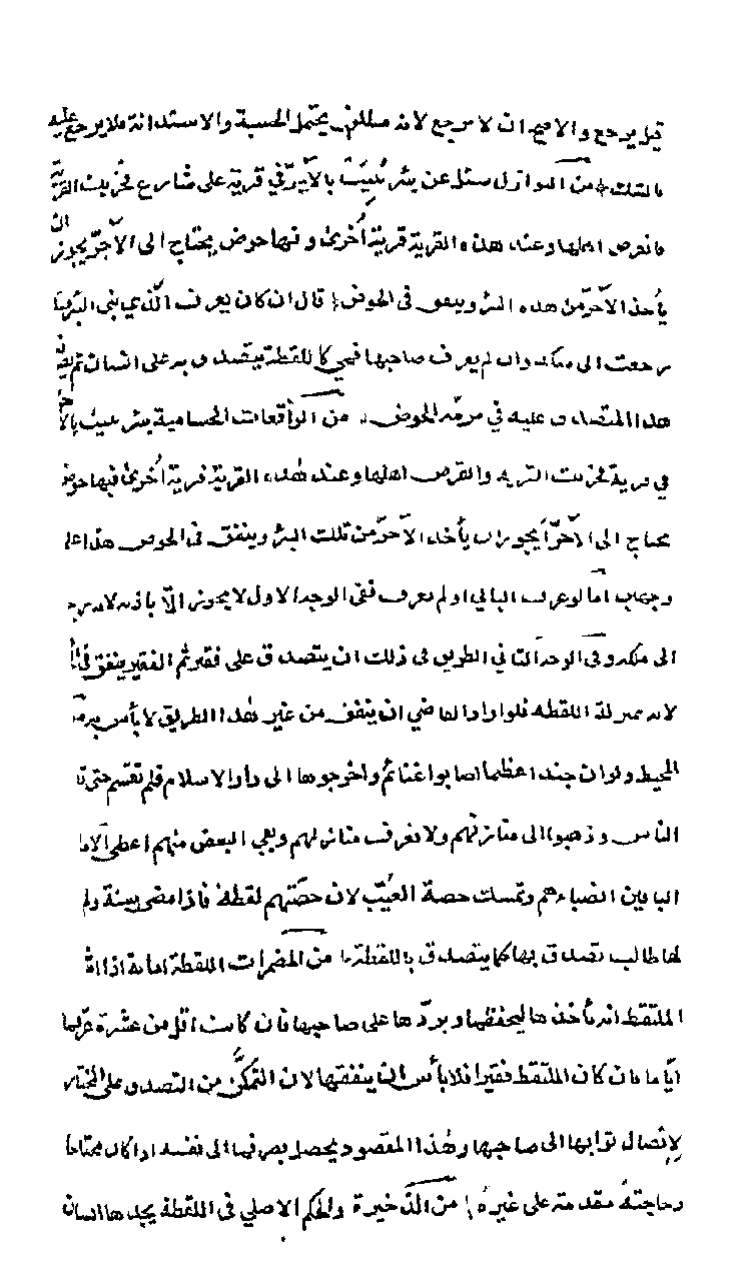 قيل يرجع والاصح ان لا يرجع لانه مطلق يحتمل الحسبة والاستدانة فلا يرجع عليه
بالشك من النوازل سئل عن بئر بُنيت بالآجرّ في قرية على شارع فخربت القرية
وانقرض اهلها وعند هذه القرية قرية أُخرى وفيها حوض يحتاج الى الآجرّ يجوز ان
يأخذ الآجرّ من هذه البئر وينفق في الحوض قال ان كان يعرف الّذي بنى البئر
رجعت الى ملكه وان لم يعرف صاحبها فهي كاللقطة يتصدق به على انسان ثم
هذا المتصدق عليه في مرمّة الحوض من الواقعات الحسامية بئر بنيت بالآجر
في قرية فخربت القرية وانقرض اهلها وعند هذه القرية قرية أُخرى فيها حوض
يحتاج الى الآجرّ أيجوز ان يأخذ الآجرّ من تلك البئر وينفق في الحوض هذا على
وجهين امّا لو عرف الباني او لم يعرف ففي الوجه الاول لا يجوز الّا باذنه لانه
الى ملكه وفي الوجه الثاني الطريق في ذلك ان يتصدق على فقير ثم الفقير ينفق في
لانه بمنزلة اللقطة فلو اراد القاضي ان ينفق من غير هذا الطريق لا بأس به
المحيط ولو ان جندا عظيما اصابوا غنائم واخرجوها الى دار الاسلام فلم تقسم حتى
الناس وذهبوا الى منازلهم ولا نعرف منازلهم وبقي البعض منهم اعطى
الباقين انصباءهم ويمسك حصة الغُيّب لان حصّتهم لقطة فاذا مضى سنة ولم
لها طالب تصدق بها كما يتصدق باللقطة من المضمرات اللقطة امانة اذا
الملتقط انه يأخذها ليحفظها ويردّها على صاحبها فان كانت اقل من عشرة عرّفها
ايّاما فان كان الملتقط فقيرا فلا بأس ان ينفقها لان التمكّن من التصدق على المحتاج
لايصال ثوابها الى صاحبها وهذا المقصود يحصل بصرفها الى نفسه اذا كان محتاجا
وحاجته مقدمة على غيره من الذّخيرة والحكم الاصلي في اللقطة يجدها انسان